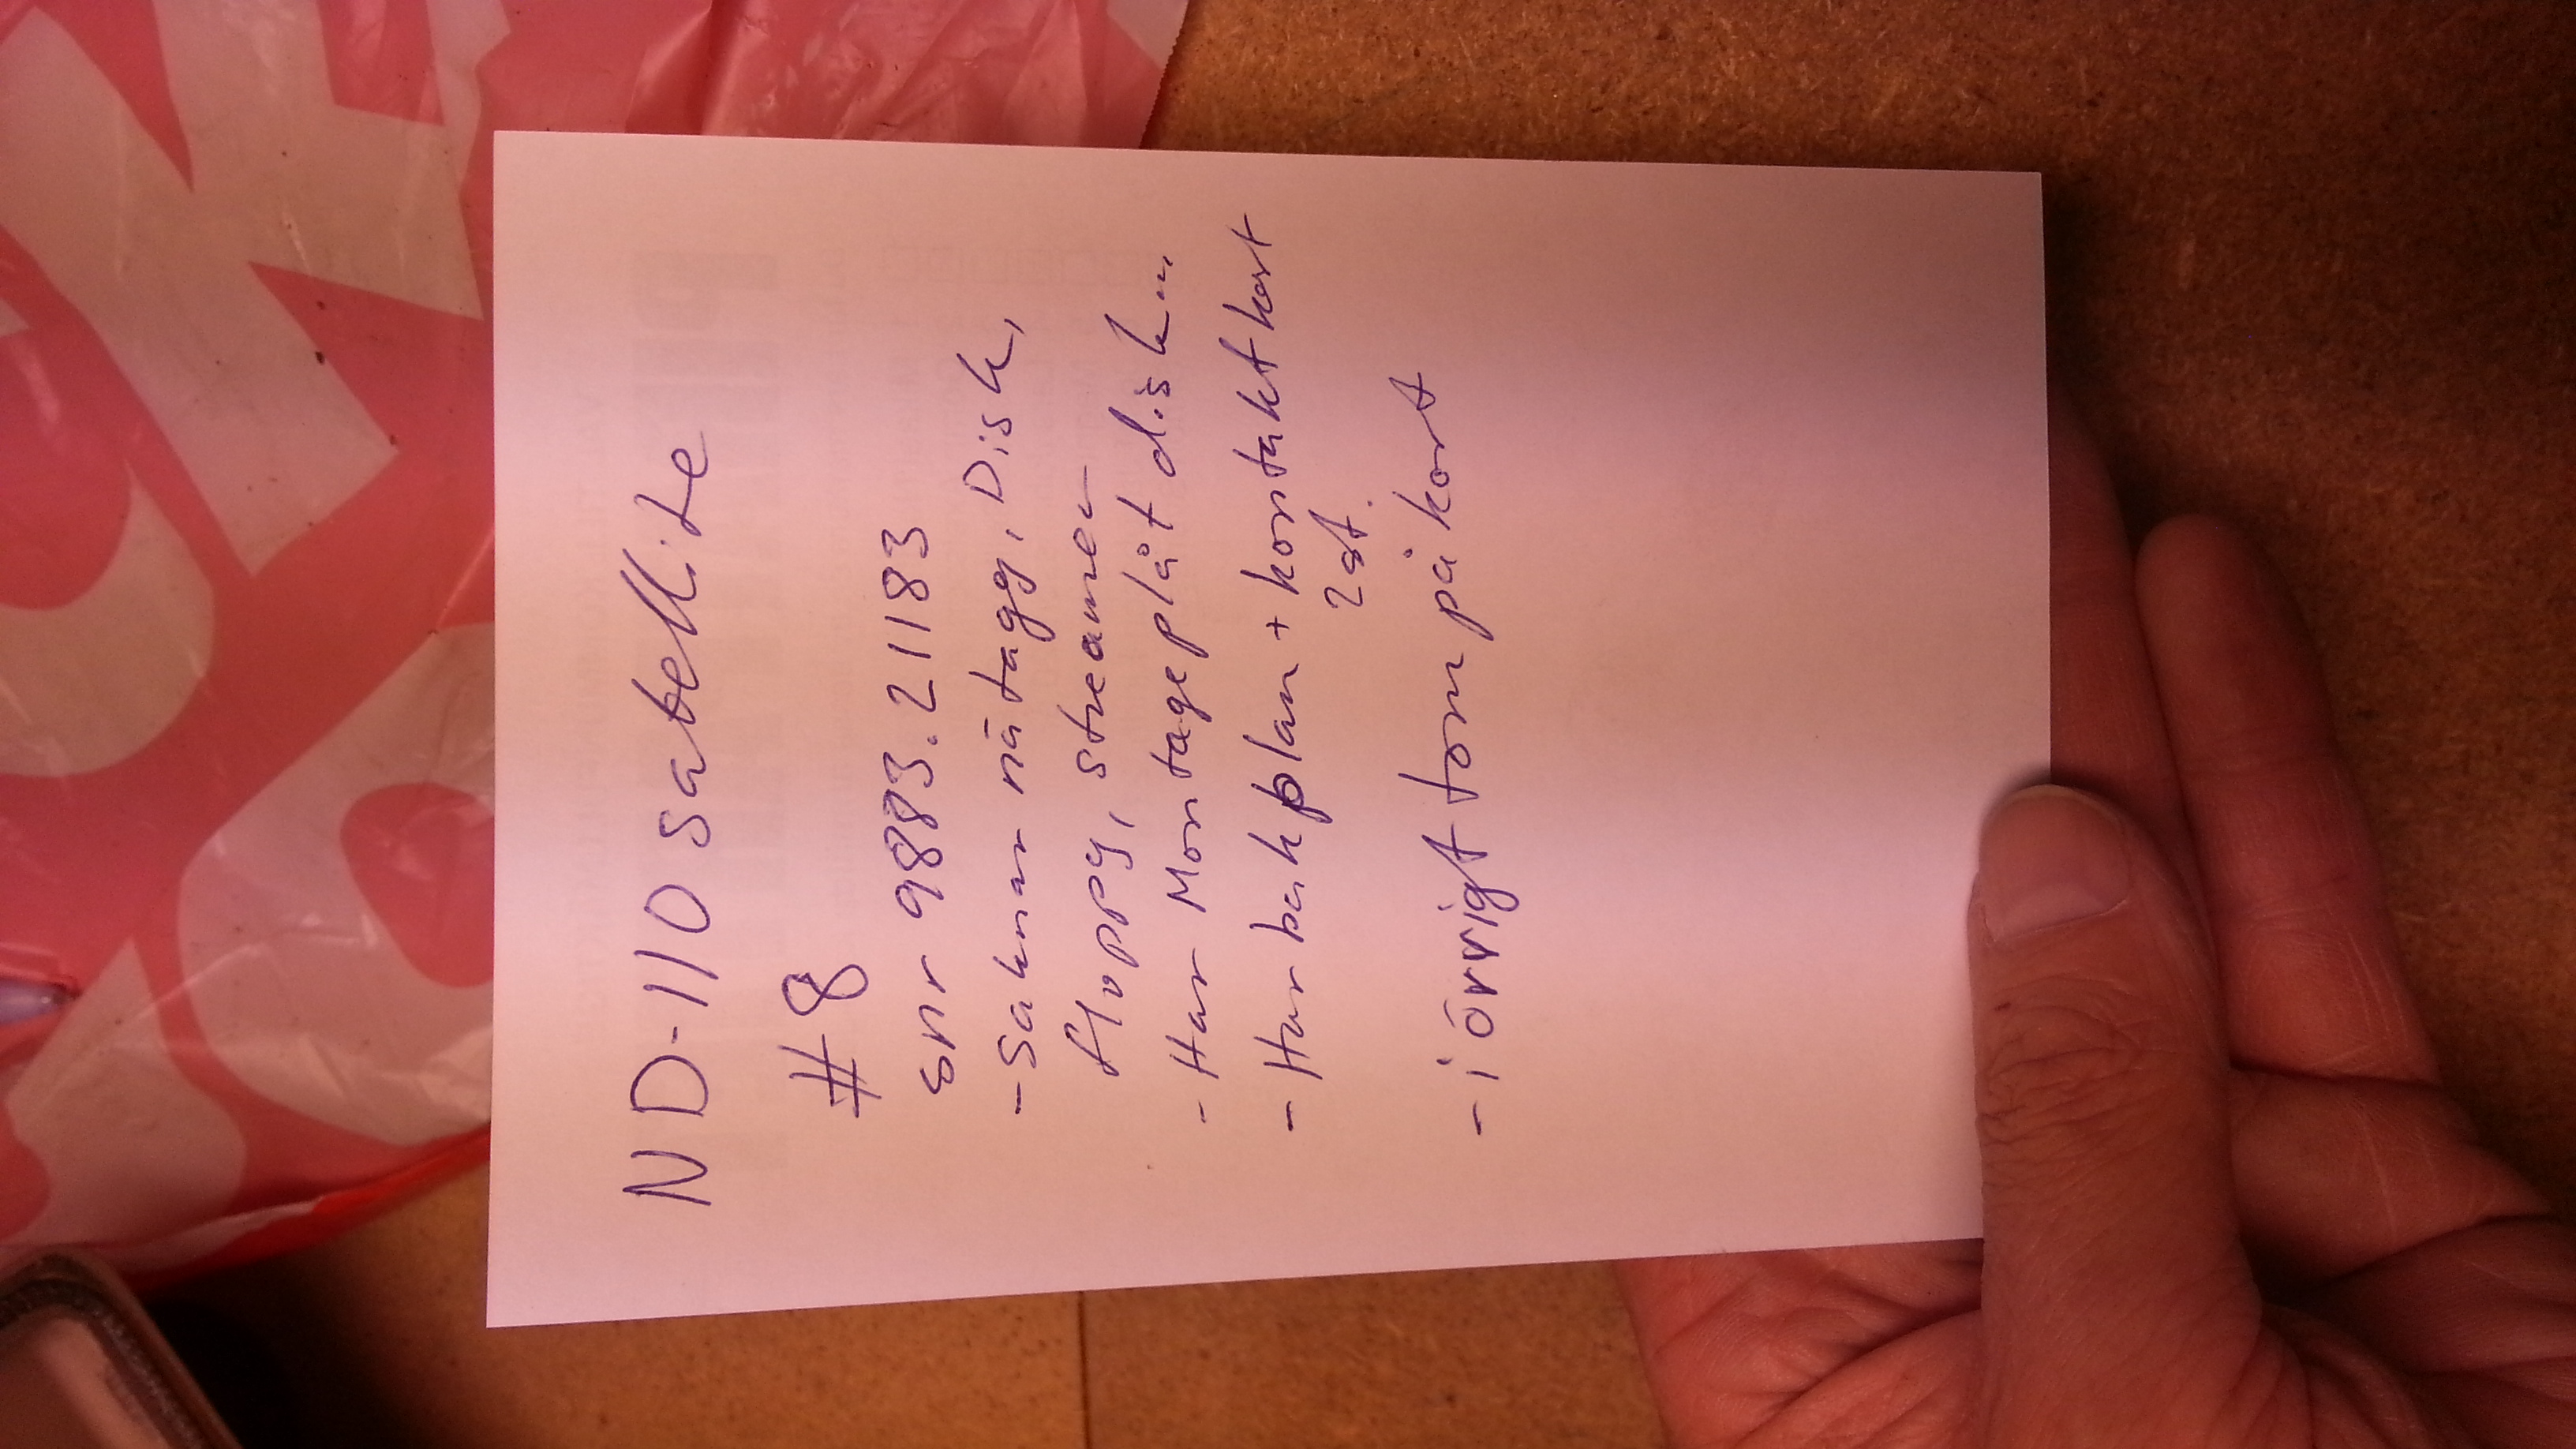 ND-110 satellite
#8
snr 9883.21183
- Saknar nätagg, Disk,
floppy, streamer
- Har Montageplåt disk...
- Har bakplan + kontaktkort
2 st.
- i övrigt tom på kort